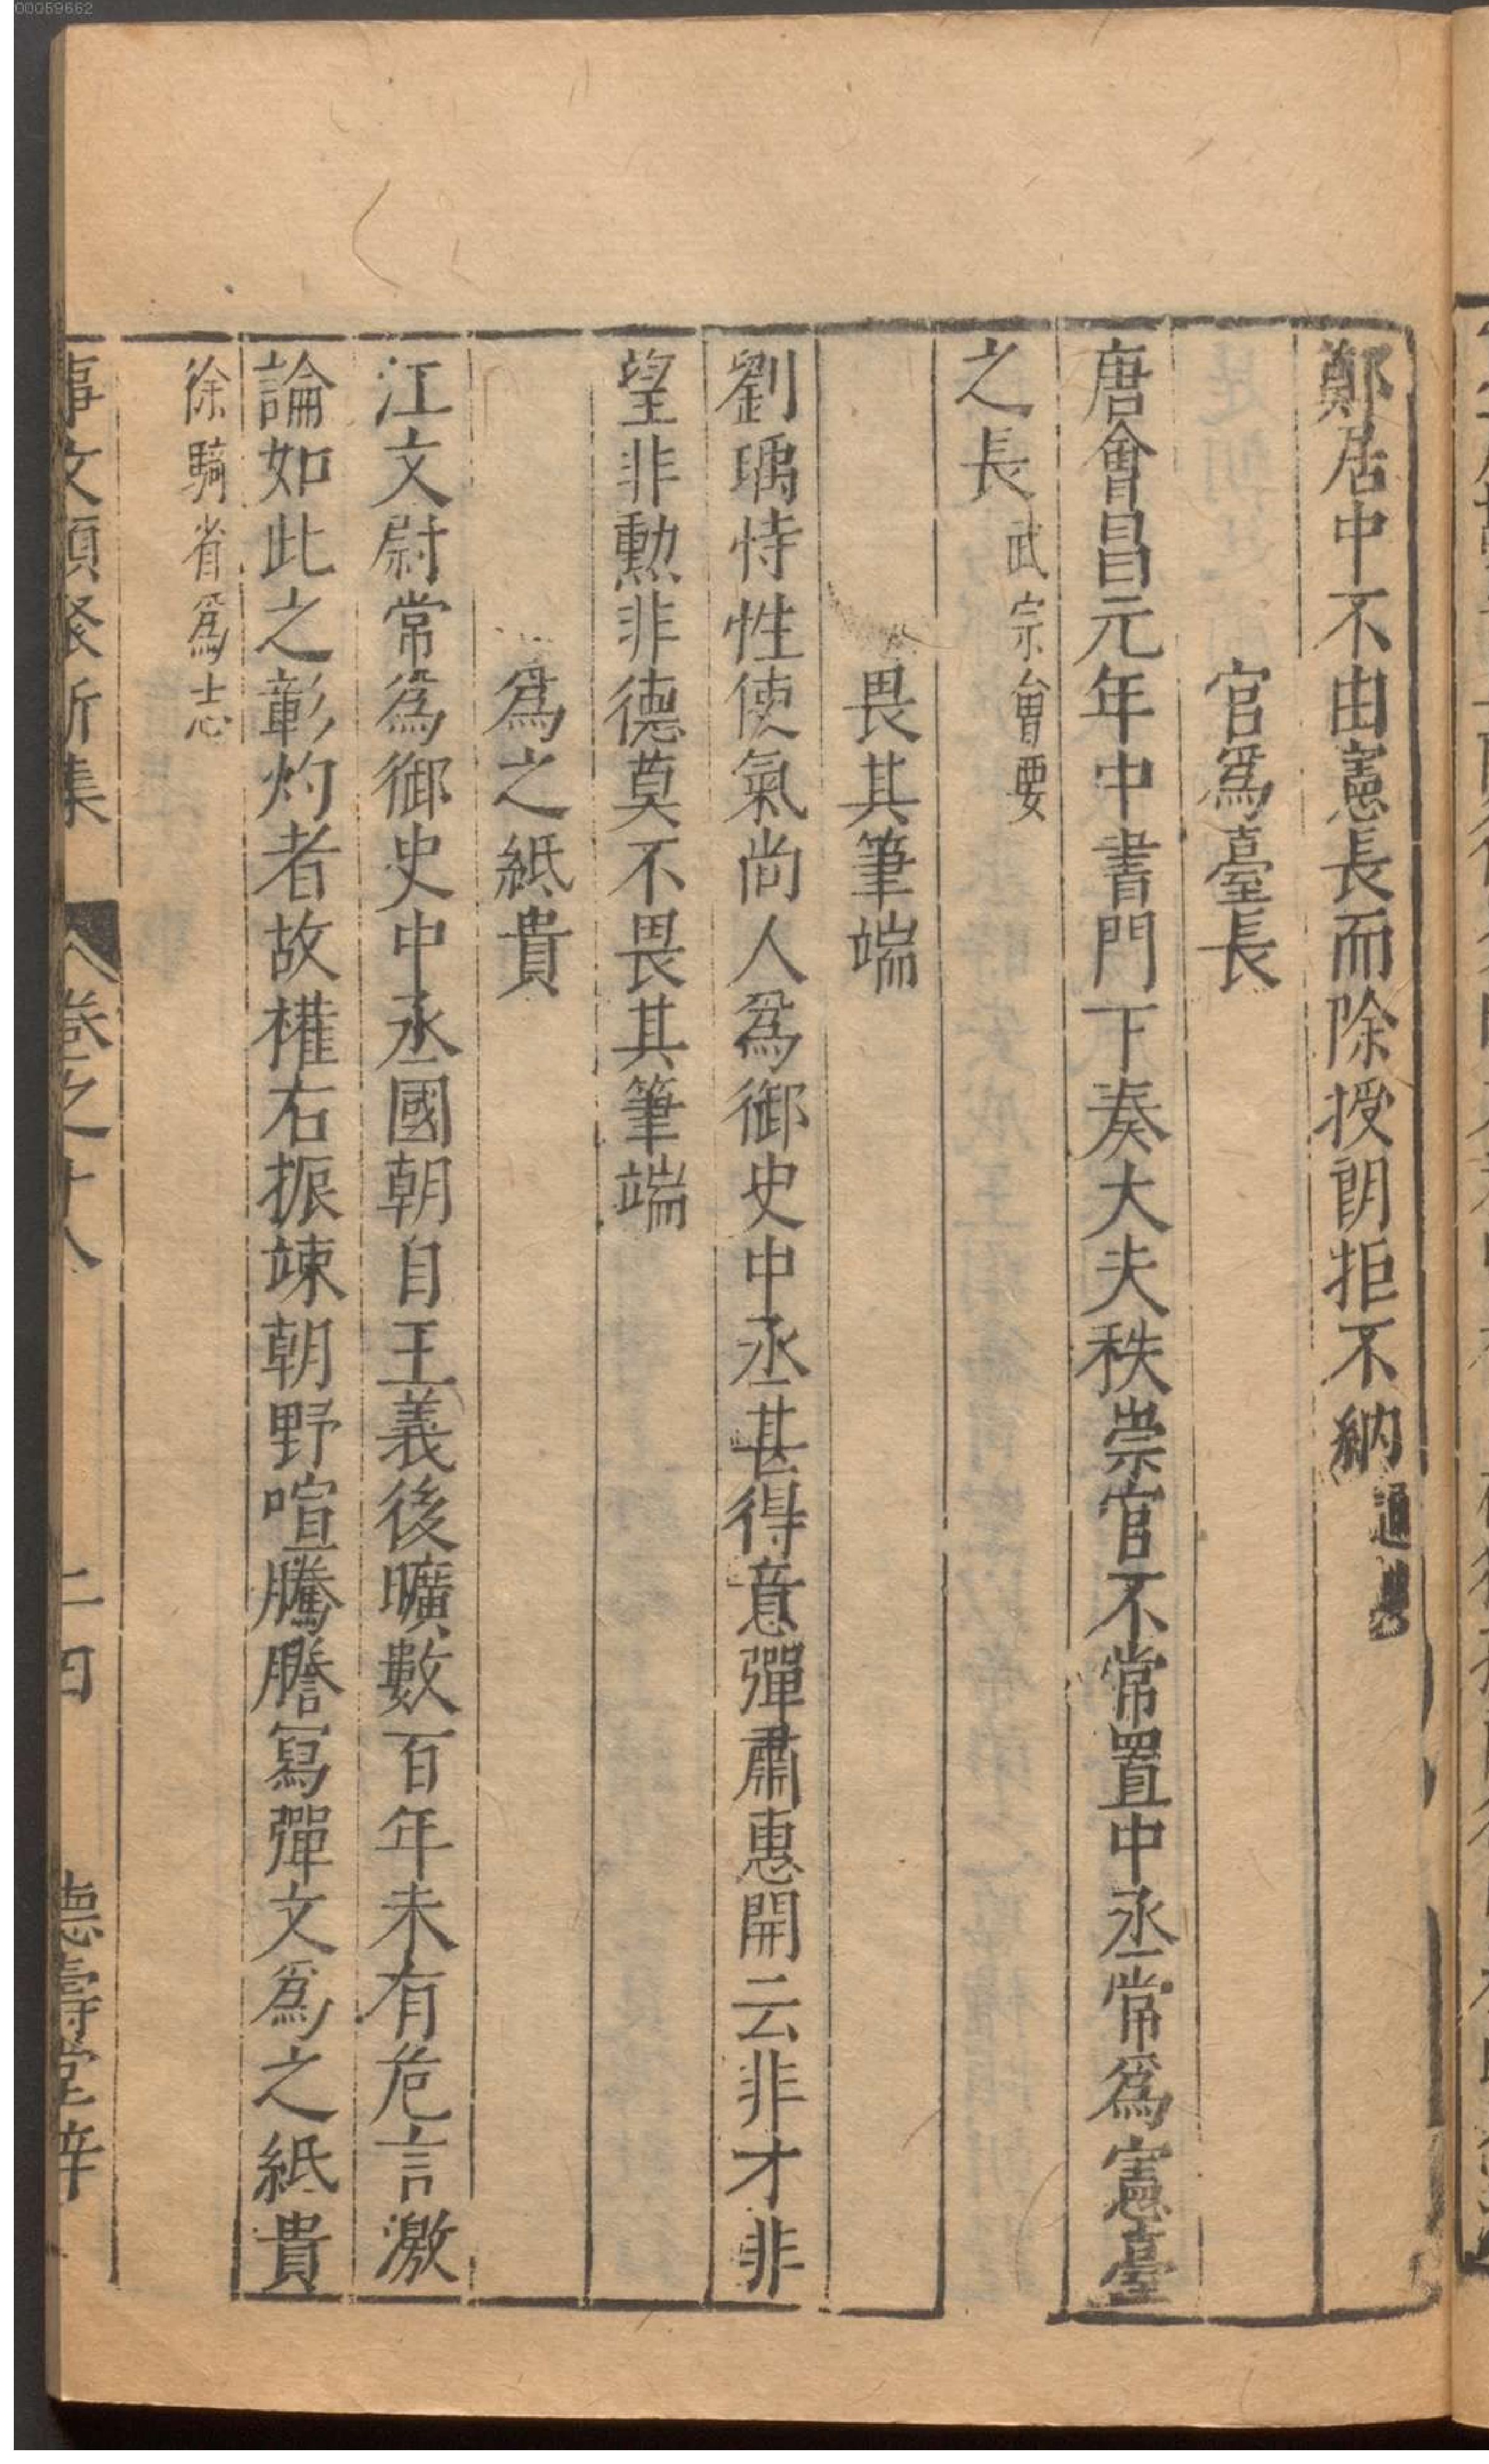 鄭居中不由憲長而除授朗拒不納通典
官爲臺長
唐會昌元年中書門下奏大夫秩崇官不常置中丞常爲憲臺
之長武宗會要
畏其筆端
劉瑀恃性使氣尚人爲御史中丞甚得意彈肅惠開云非才非
望非勲非德莫不畏其筆端
爲之紙貴
江文尉常爲御史中丞國朝自王義後曠數百年未有危言激
論如此之彰灼者故權右振竦朝野喧騰謄寫彈文爲之紙貴
徐騎省爲志
事文類聚新集 卷之十八 二四 德壽堂梓
00059662